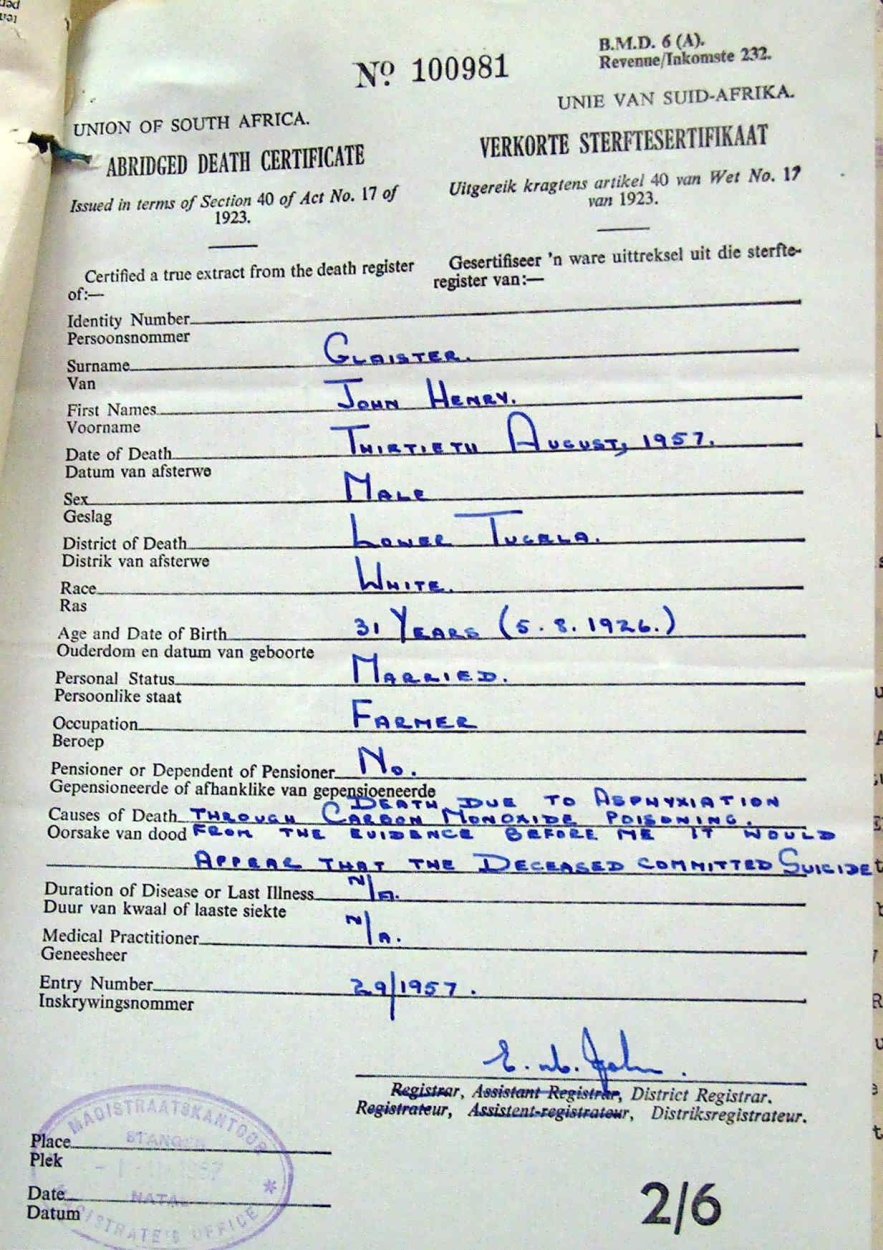 Nº 100981
B.M.D. 6 (A).
Revenue/Inkomste 232.
UNION OF SOUTH AFRICA.
ABRIDGED DEATH CERTIFICATE
Issued in terms of Section 40 of Act No. 17 of
1923.
UNIE VAN SUID-AFRIKA.
VERKORTE STERFTESERTIFIKAAT
Uitgereik kragtens artikel 40 van Wet No. 17
van 1923.
Certified a true extract from the death register
of:—
Gesertifiseer 'n ware uittreksel uit die sterfte-
register van:—
Identity Number
Persoonsnommer
Surname GLAISTER.
Van
First Names JOHN HENRY.
Voorname
Date of Death THIRTIETH AUGUST, 1957.
Datum van afsterwe
Sex MALE
Geslag
District of Death LOWER TUGELA.
Distrik van afsterwe
Race WHITE.
Ras
Age and Date of Birth 31 YEARS (5.8.1926.)
Ouderdom en datum van geboorte
Personal Status MARRIED.
Persoonlike staat
Occupation FARMER
Beroep
Pensioner or Dependent of Pensioner NO.
Gepensioneerde of afhanklike van gepensioeneerde
DEATH DUE TO ASPHYXIATION
Causes of Death THROUGH CARBON MONOXIDE POISONING.
Oorsake van dood FROM THE EVIDENCE BEFORE ME IT WOULD
APPEAR THAT THE DECEASED COMMITTED SUICIDE
Duration of Disease or Last Illness N/A.
Duur van kwaal of laaste siekte
Medical Practitioner N/A.
Geneesheer
Entry Number 29/1957.
Inskrywingsnommer
Registrar, Assistant Registrar, District Registrar.
Registrateur, Assistent-registrateur, Distriksregistrateur.
MAGISTRAATSKANTOOR
STANGER
Place
Plek
1957
Date
NATAL
Datum
MAGISTRATE'S OFFICE
2/6